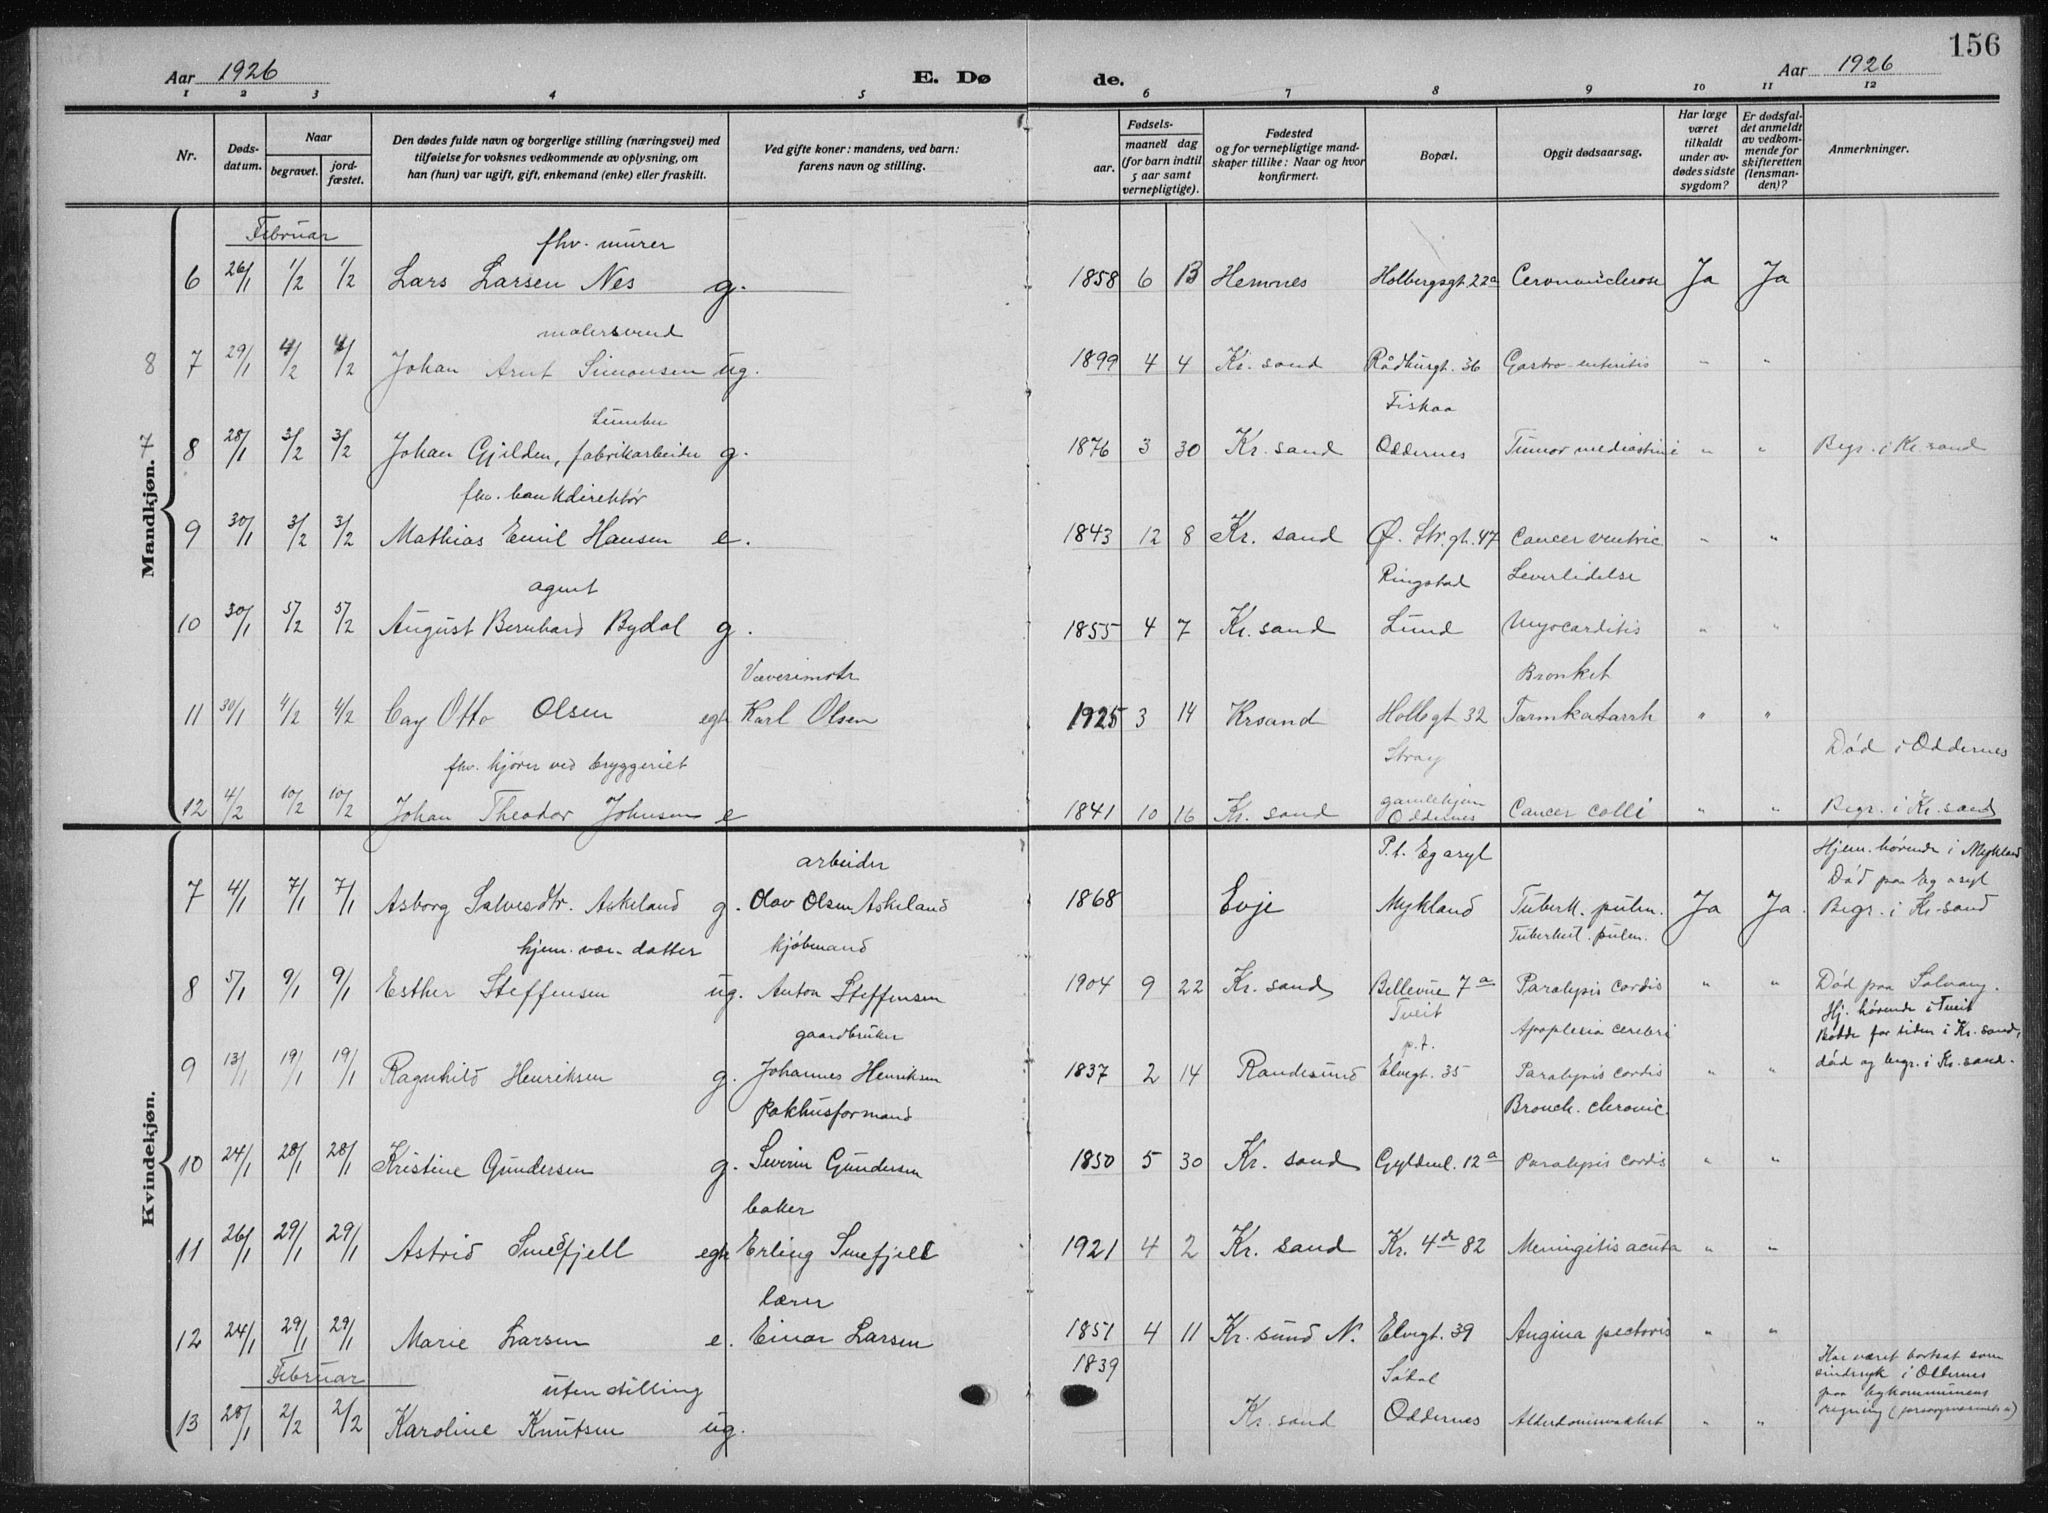 156
Aar 1926
E. Dø
de.
Aar 1926
1 2 3 4 5 6 7 8 9 10 11 12
Nr.
Døds-
datum.
Naar
begravet.
jord-
fæstet.
Den dødes fulde navn og borgerlige stilling (næringsvei) med
tilføielse for voksnes vedkommende av oplysning, om
han (hun) var ugift, gift, enkemand (enke) eller fraskilt.
Ved gifte koner: mandens, ved barn:
farens navn og stilling.
Fødsels-
aar.
maaned dag
(for barn indtil
5 aar samt
vernepligtige).
Fødested
og for vernepligtige mand-
skaper tillike: Naar og hvor
konfirmert.
Bopæl.
Opgit dødsaarsag.
Har læge
været
tilkaldt
under av-
dødes sidste
sygdom?
Er dødsfal-
det anmeldt
av vedkom-
mende for
skifteretten
(lensman-
den)?
Anmerkninger.
Mandkjøn.
8
7
Februar
fhv. murer
6 26/1 1/2 1/2 Lars Larsen Nes g. 1858 6 13 Hemnes Holbergsgt. 22a Ja Ja
malersvend
7 29/1 4/2 4/2 Johan Arnt Simonsen ug. 1899 4 4 Kr. sand Rådhusgt. 36 Gastro-enteritis " "
Fiskaa
8 28/1 3/2 3/2 Johan Gjilden, fabrikarbeider g. 1876 3 30 Kr. sand Oddernes Tumor mediastini " " Begr. i Kr. sand
fhv. bankdirektør
9 30/1 3/2 3/2 Mathias Emil Hansen e. 1843 12 8 Kr. sand Ø. Str. gt. 47 Cancer ventric " "
agent Ringstad Leverlidelse
10 30/1 5/2 5/2 August Bernhard Bydal g. 1855 4 7 Kr. sand Lund Myocarditis " "
Væverimstr Bronket
11 30/1 4/2 4/2 Cay Otto Olsen egte Karl Olsen 1925 3 14 Krsand Holbgt 32 Tarmkatarrh " "
fhv. kjører ved bryggeriet Stray Død i Oddernes
12 4/2 10/2 10/2 Johan Theodor Johnsen e 1841 10 16 Kr. sand gamlehjem Oddernes Cancer colli " " Begr. i Kr. sand
Kvindekjøn.
arbeider P.t. Eg asyl Hjem. hørende i Mykland
Død paa Eg asyl
7 4/1 7/1 7/1 Asborg Salvesdtr. Askeland g. Olav Olsen Askeland 1868 Evje Mykland Tuberk. pulm. Ja Ja. Begr. i Kr. sand
hjem. vær. datter kjøbmand Tuberkul. pulm.
8 5/1 9/1 9/1 Esther Steffensen ug. Anton Steffensen 1904 9 22 Kr. sand Bellevue 7a Paralysis cordis " " Død paa Solvang.
gaardbruker Tveit p.t. Apoplexia cerebri Hj. hørende i Tveit
Bodde for tiden i Kr. sand,
9 13/1 19/1 19/1 Ragnhild Henriksen g. Johannes Henriksen 1837 2 14 Randesund Elvegt. 35 Paralysis cordis " " død og begr. i Kr. sand.
pakhusformand Bronch. chronic.
10 24/1 28/1 28/1 Kristine Gundersen g. Severin Gundersen 1850 5 30 Kr. sand Gyldenl. 12a Paralysis cordis " "
baker
11 26/1 29/1 29/1 Astrid Smedfjell egte Erling Smefjell 1921 4 2 Kr. sand Kr. 4de 82 Meningitis acuta " "
lærer
12 24/1 29/1 29/1 Marie Larsen e. Einar Larsen 1851 4 11 Kr. sund N. Elvegt. 39 Angina pectoris " "
Februar
uten stilling 1839 Søkal Har været bortsat som
sindssyk i Oddernes
paa bykommunens
regning
13 28/1 2/2 2/2 Karoline Knutsen ug. Kr. sand Oddernes Alderdomssvakhet " "